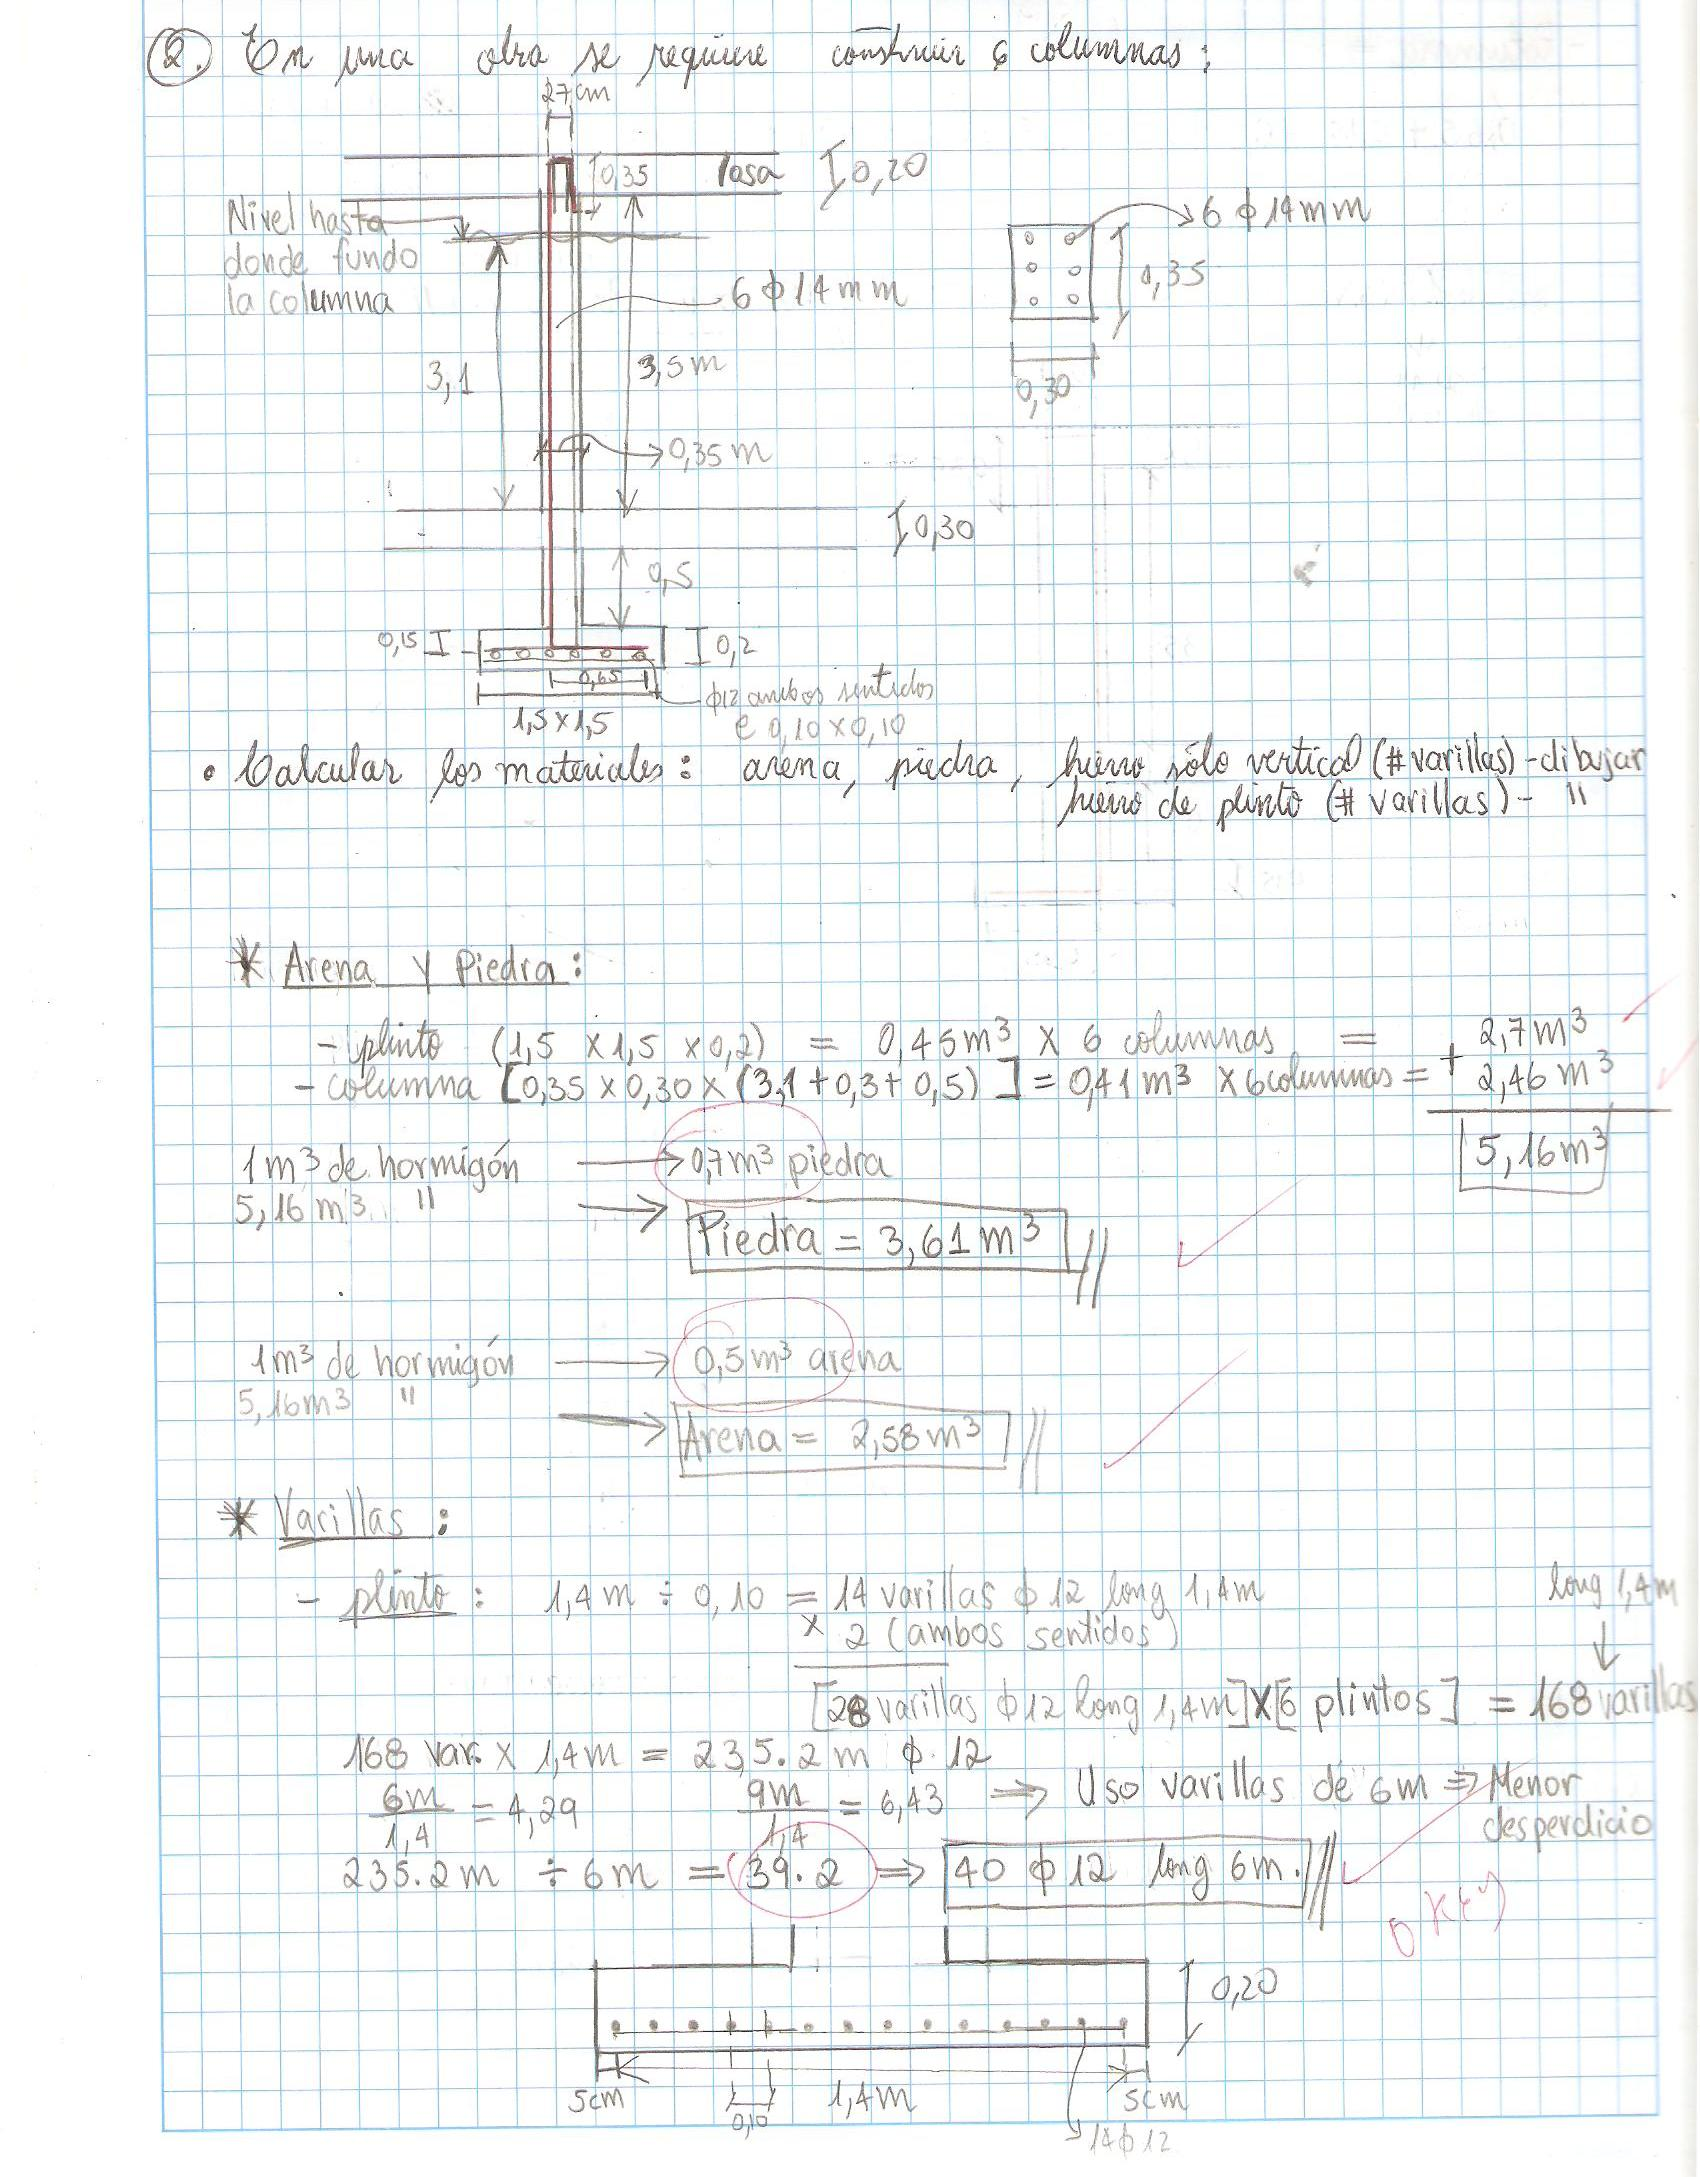 2. En una obra se requiere construir 6 columnas:
27cm
0,35 losa 0,20
Nivel hasta
donde fundo
la columna
6 ϕ 14mm
0,35
0,30
6 ϕ 14mm
3,1
3,5m
0,35m
0,30
0,5
0,15
0,2
0,65
1,5 x 1,5
ϕ12 ambos sentidos
@ 0,10 x 0,10
• Calcular los materiales: arena, piedra, hierro sólo vertical (# varillas) - dibujar
hierro de plinto (# varillas) - "
* Arena y Piedra:
- plinto (1,5 x 1,5 x 0,2) = 0,45m³ x 6 columnas = 2,7m³
- columna [0,35 x 0,30 x (3,1 + 0,3 + 0,5)] = 0,41m³ x 6 columnas = + 2,46m³
5,16m³
1m³ de hormigón → 0,7m³ piedra
5,16m³ " → Piedra = 3,61m³
1m³ de hormigón → 0,5m³ arena
5,16m³ " → Arena = 2,58m³
* Varillas:
- plinto: 1,4m ÷ 0,10 = 14 varillas ϕ 12 long 1,4m
long 1,4m
x 2 (ambos sentidos)
[28 varillas ϕ 12 long 1,4m] x [6 plintos] = 168 varillas
168 var. x 1,4m = 235.2m ϕ 12
6m/1,4 = 4,29 9m/1,4 = 6,43 ⇒ Uso varillas de 6m ⇒ Menor
desperdicio
235.2m ÷ 6m = 39.2 ⇒ 40 ϕ 12 long 6m.
Okey
0,20
5cm 0,10 1,4m 5cm
14ϕ12